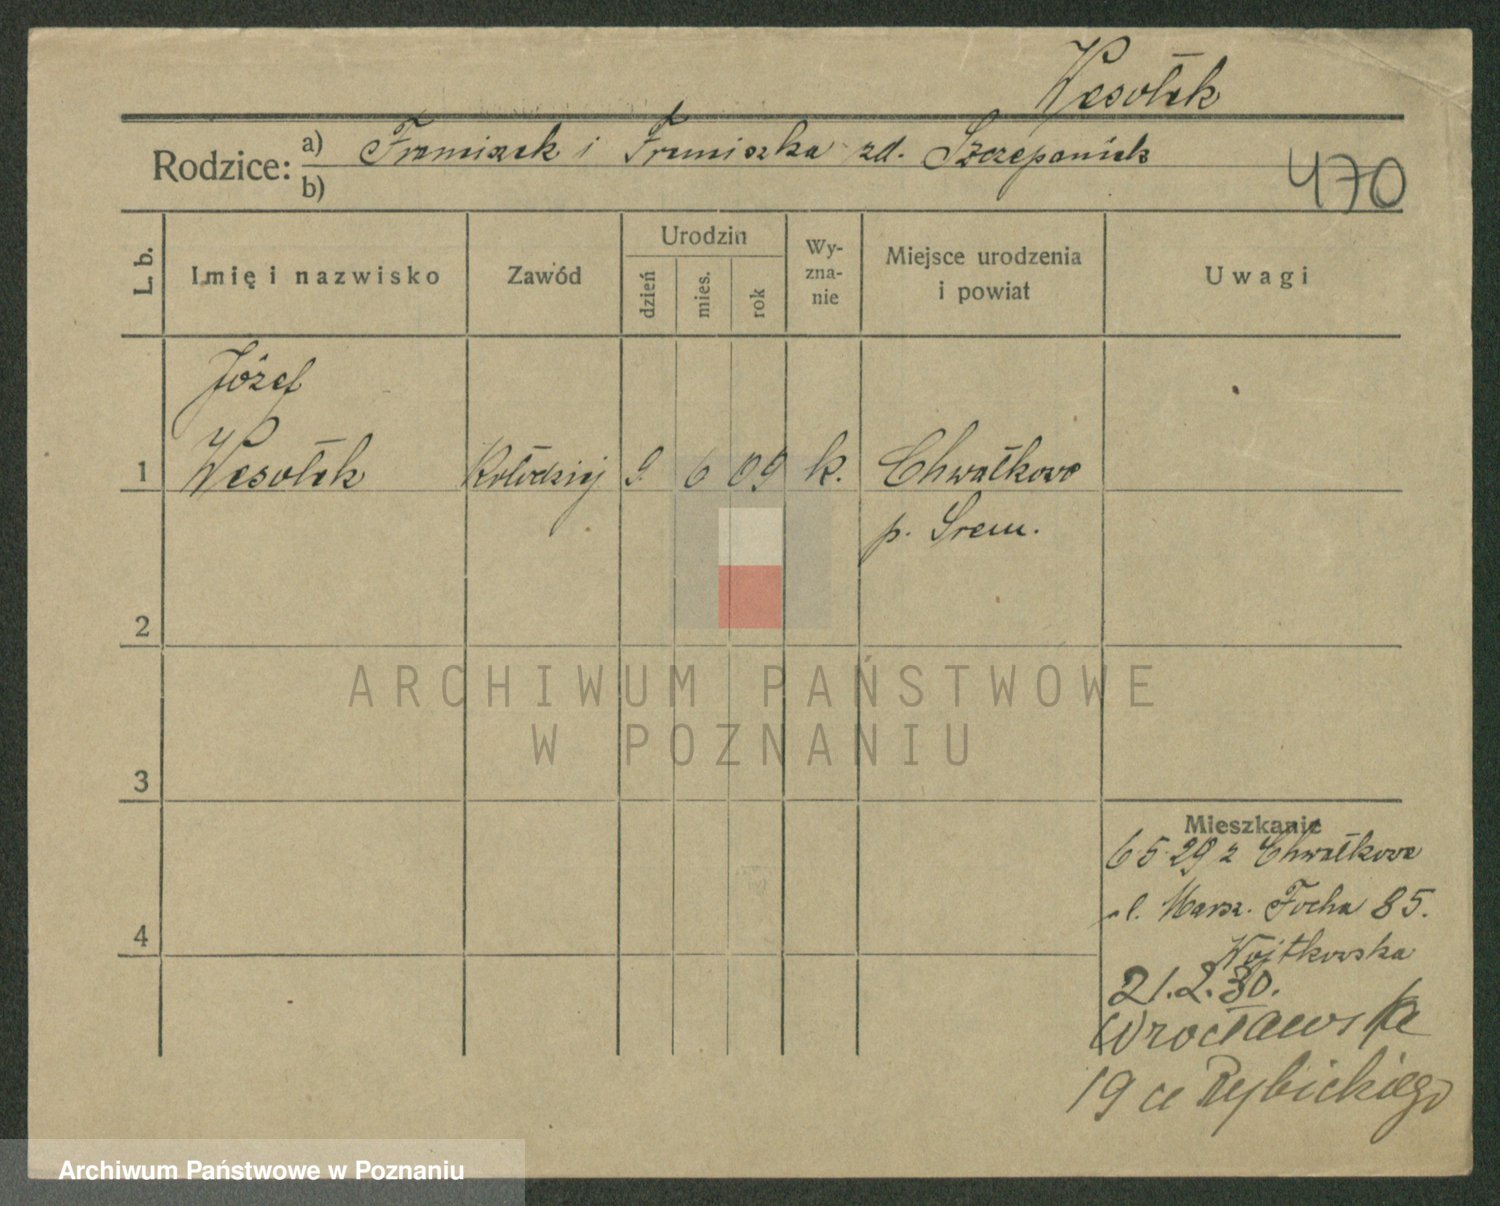 Wesołek
Rodzice: a) Franciszek i Franciszka zd. Szczepaniak
b)
470
L. b.
Imię i nazwisko
Zawód
Urodzin
dzień
mies.
rok
Wy-
zna-
nie
Miejsce urodzenia
i powiat
Uwagi
Józef
1 Wesołek Kołodziej 9. 6 09 k. Chwałkowo
p. Srem.
2
ARCHIWUM PAŃSTWOWE
W POZNANIU
3
Mieszkanie
6.5.29 z Chwałkowa
ul. Marsz. Focha 85.
4
Wojtkowska
21.2.30.
Wrocławska
19 Rybickiego
Archiwum Państwowe w Poznaniu